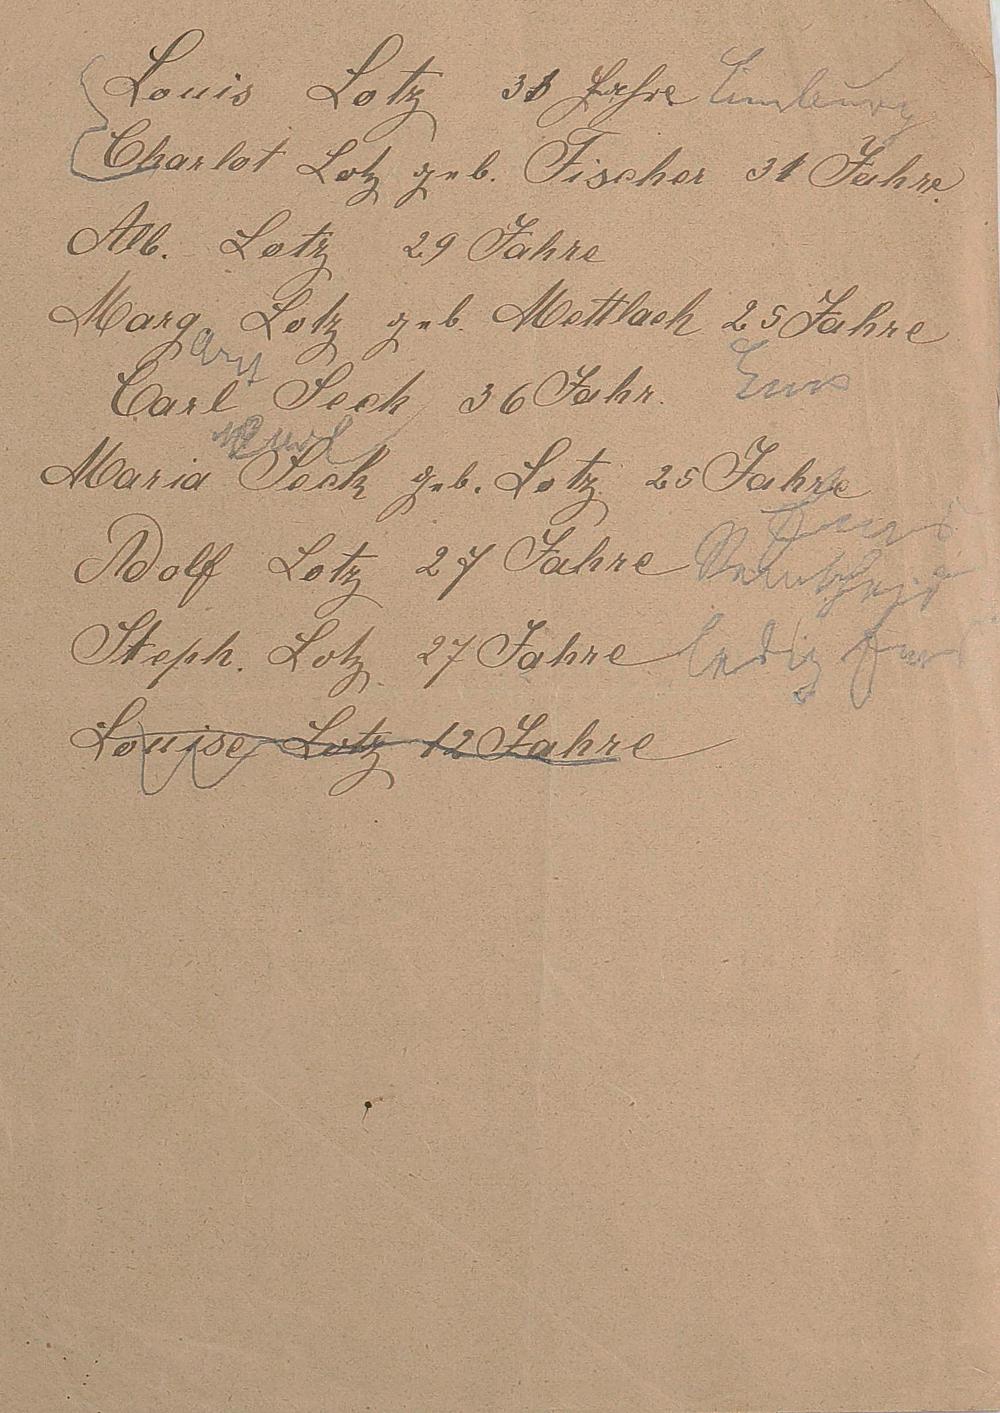 Louis Lotz 31 Jahre Limburg
Charlot Lotz geb. Fischer 31 Jahre
Alb. Lotz 29 Jahre
Marg Lotz geb. Mettlach 25 Jahre
Carl Seck 36 Jahr. Ems
Maria Seck geb. Lotz 25 Jahre
Ems
Adolf Lotz 27 Jahre Remscheid
Steph. Lotz 27 Jahre ledig Ems
Louise Lotz 12 Jahre